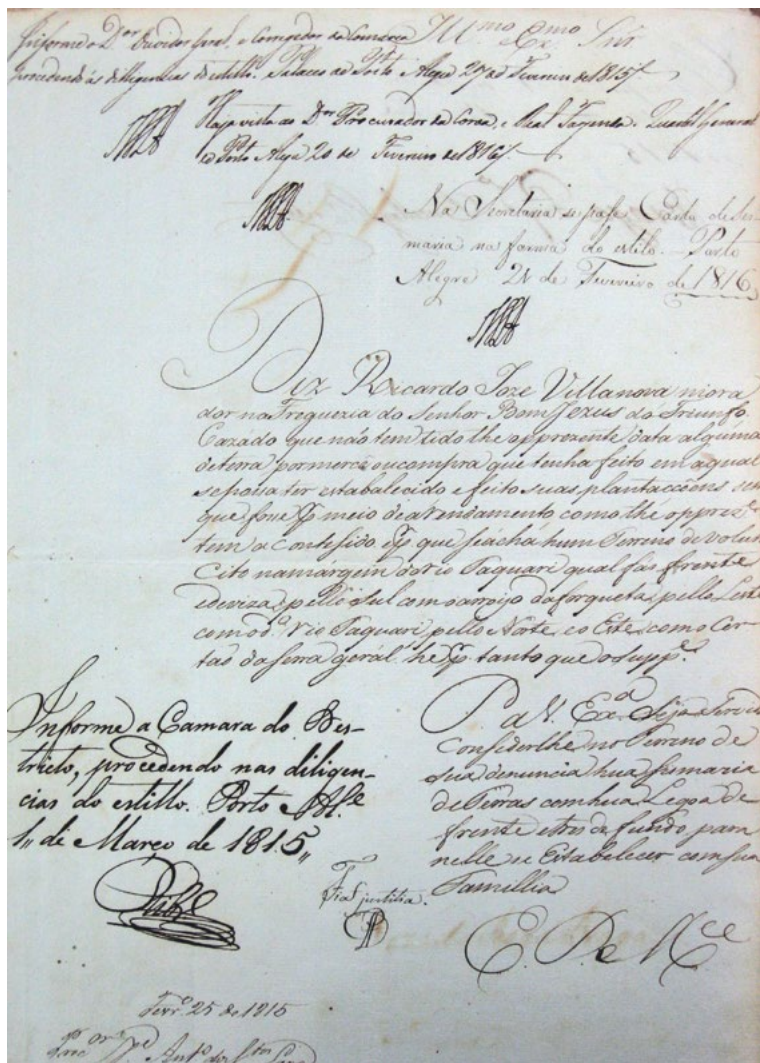 Informe o D.or Ouvidor Geral, e Corregedor da Comarca Ill.mo Ex.mo Snr.
procedendo ás diligencias do estillo. Palacio de Porto Alegre 27 de Fevereiro de 1815
Haja vista ao D.or Procurador da Coroa, e Real Fazenda. Quartel General
de Porto Alegre 20 de Fevereiro de 1816
Na Secretaria se passe Carta de Ses-
maria na forma do estilo. Porto
Alegre 21 de Fevereiro de 1816
Diz Ricardo Joze Villanova mora
dor na Freguezia do Senhor Bom Jezus do Triunfo
Cazado que não tem tido the o prezente data alguma
de terra por merce ou compra que tenha feito em a qual
se possa ter estabalecido e feito suas plantaccoens sem
que fosse p. meio de arendamento como the o prez.e
tem acontesido. E p. que se áchá hum Terreno devolu
Cito na márgem do rio Taquari qual fás frente
e deviza pello Sul com o arroijo da forqueta, pello Leste
com o d.o rio Taquari, pello Norte, e o Este, com o Cer-
tão da Serra gerál. he p. tanto que o supp.e
P. a V. Ex.a Seja Servido
Consederlhe no Terreno de
sua denuncia hua sesmaria
de Terras com hua Legoa de
frente e tres de fundo, para
nelle se Estabalecer com sua
Famillia
E. R. M.ce
Informe a Camara do Des-
tricto, procedendo nas diligen-
cias do estillo. Porto Al.e
1,, de Março de 1815,,
Fiat justitia.
Fevr.o 25 de 1815